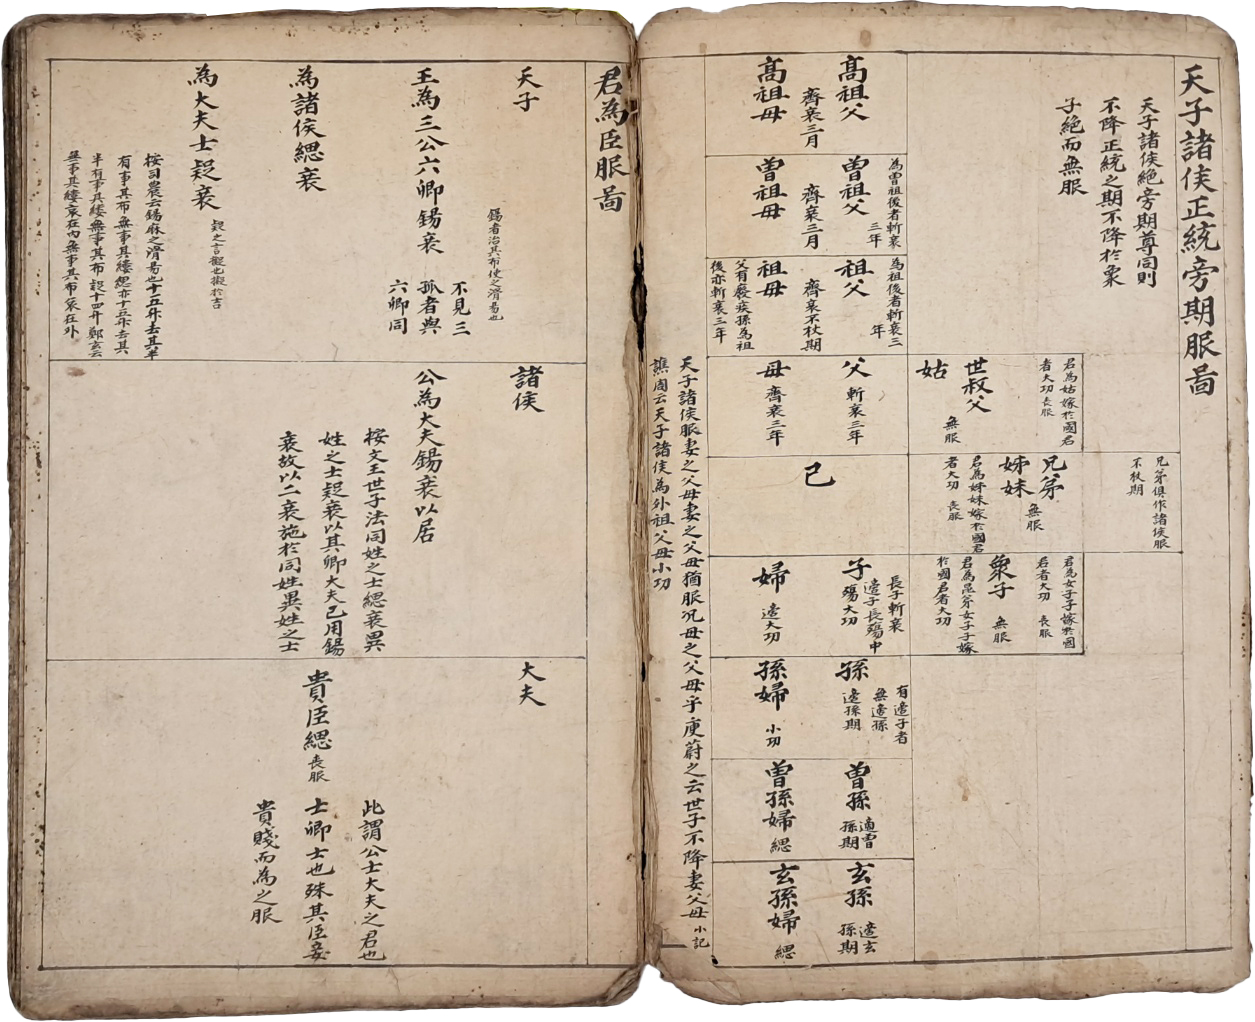 天子諸侯正統旁期服啚
天子諸侯絕旁期尊同則
不降正統之期不降於衆
子絕而無服
高祖父
齊衰三月
高祖母
為曾祖後者斬衰
三年
曾祖父
齊衰三月
曾祖母
為祖後者斬衰三
年
祖父
齊衰不杖期
祖母
父有癈疾孫為祖
後亦斬衰三年
君為姑嫁於國君
者大功 喪服
世叔父
無服
姑
父 斬衰三年
母 齊衰三年
兄弟俱作諸侯服
不杖期
兄弟
無服
姊妹
君為姊妹嫁於國君
者大功 喪服
己
君為女子子嫁於國
君者大功 喪服
衆子 無服
君為昆弟女子子嫁
於國君者大功
長子斬衰
適子長殤中
殤大功
子
婦 適大功
有適子者
無適孫
適孫期
孫
孫婦 小功
曾孫 適曾
孫期
曾孫婦 緦
玄孫 適玄
孫期
玄孫婦 緦
天子諸侯服妻之父母妻之父母猶服况母之父母乎庾蔚之云世子不降妻父母 小記
譙周云天子諸侯為外祖父母小功
君為臣服啚
天子
錫者治其布使之滑昜也
王為三公六卿錫衰
不見三
孤者與
六卿同
為諸侯緦衰
為大夫士疑衰
疑之言擬也擬於吉
按司農云錫麻之滑昜也十五升去其半
有事其布無事其縷緦亦十五升去其
半有事其縷無事其布疑十四升鄭玄云
無事其縷哀在內無事其布哀在外
諸侯
公為大夫錫衰以居
按文王世子法同姓之士緦衰異
姓之士疑衰以其卿大夫已用錫
衰故以二衰施於同姓異姓之士
大夫
貴臣緦 喪服
此謂公士大夫之君也
士卿士也殊其臣妾
貴賤而為之服